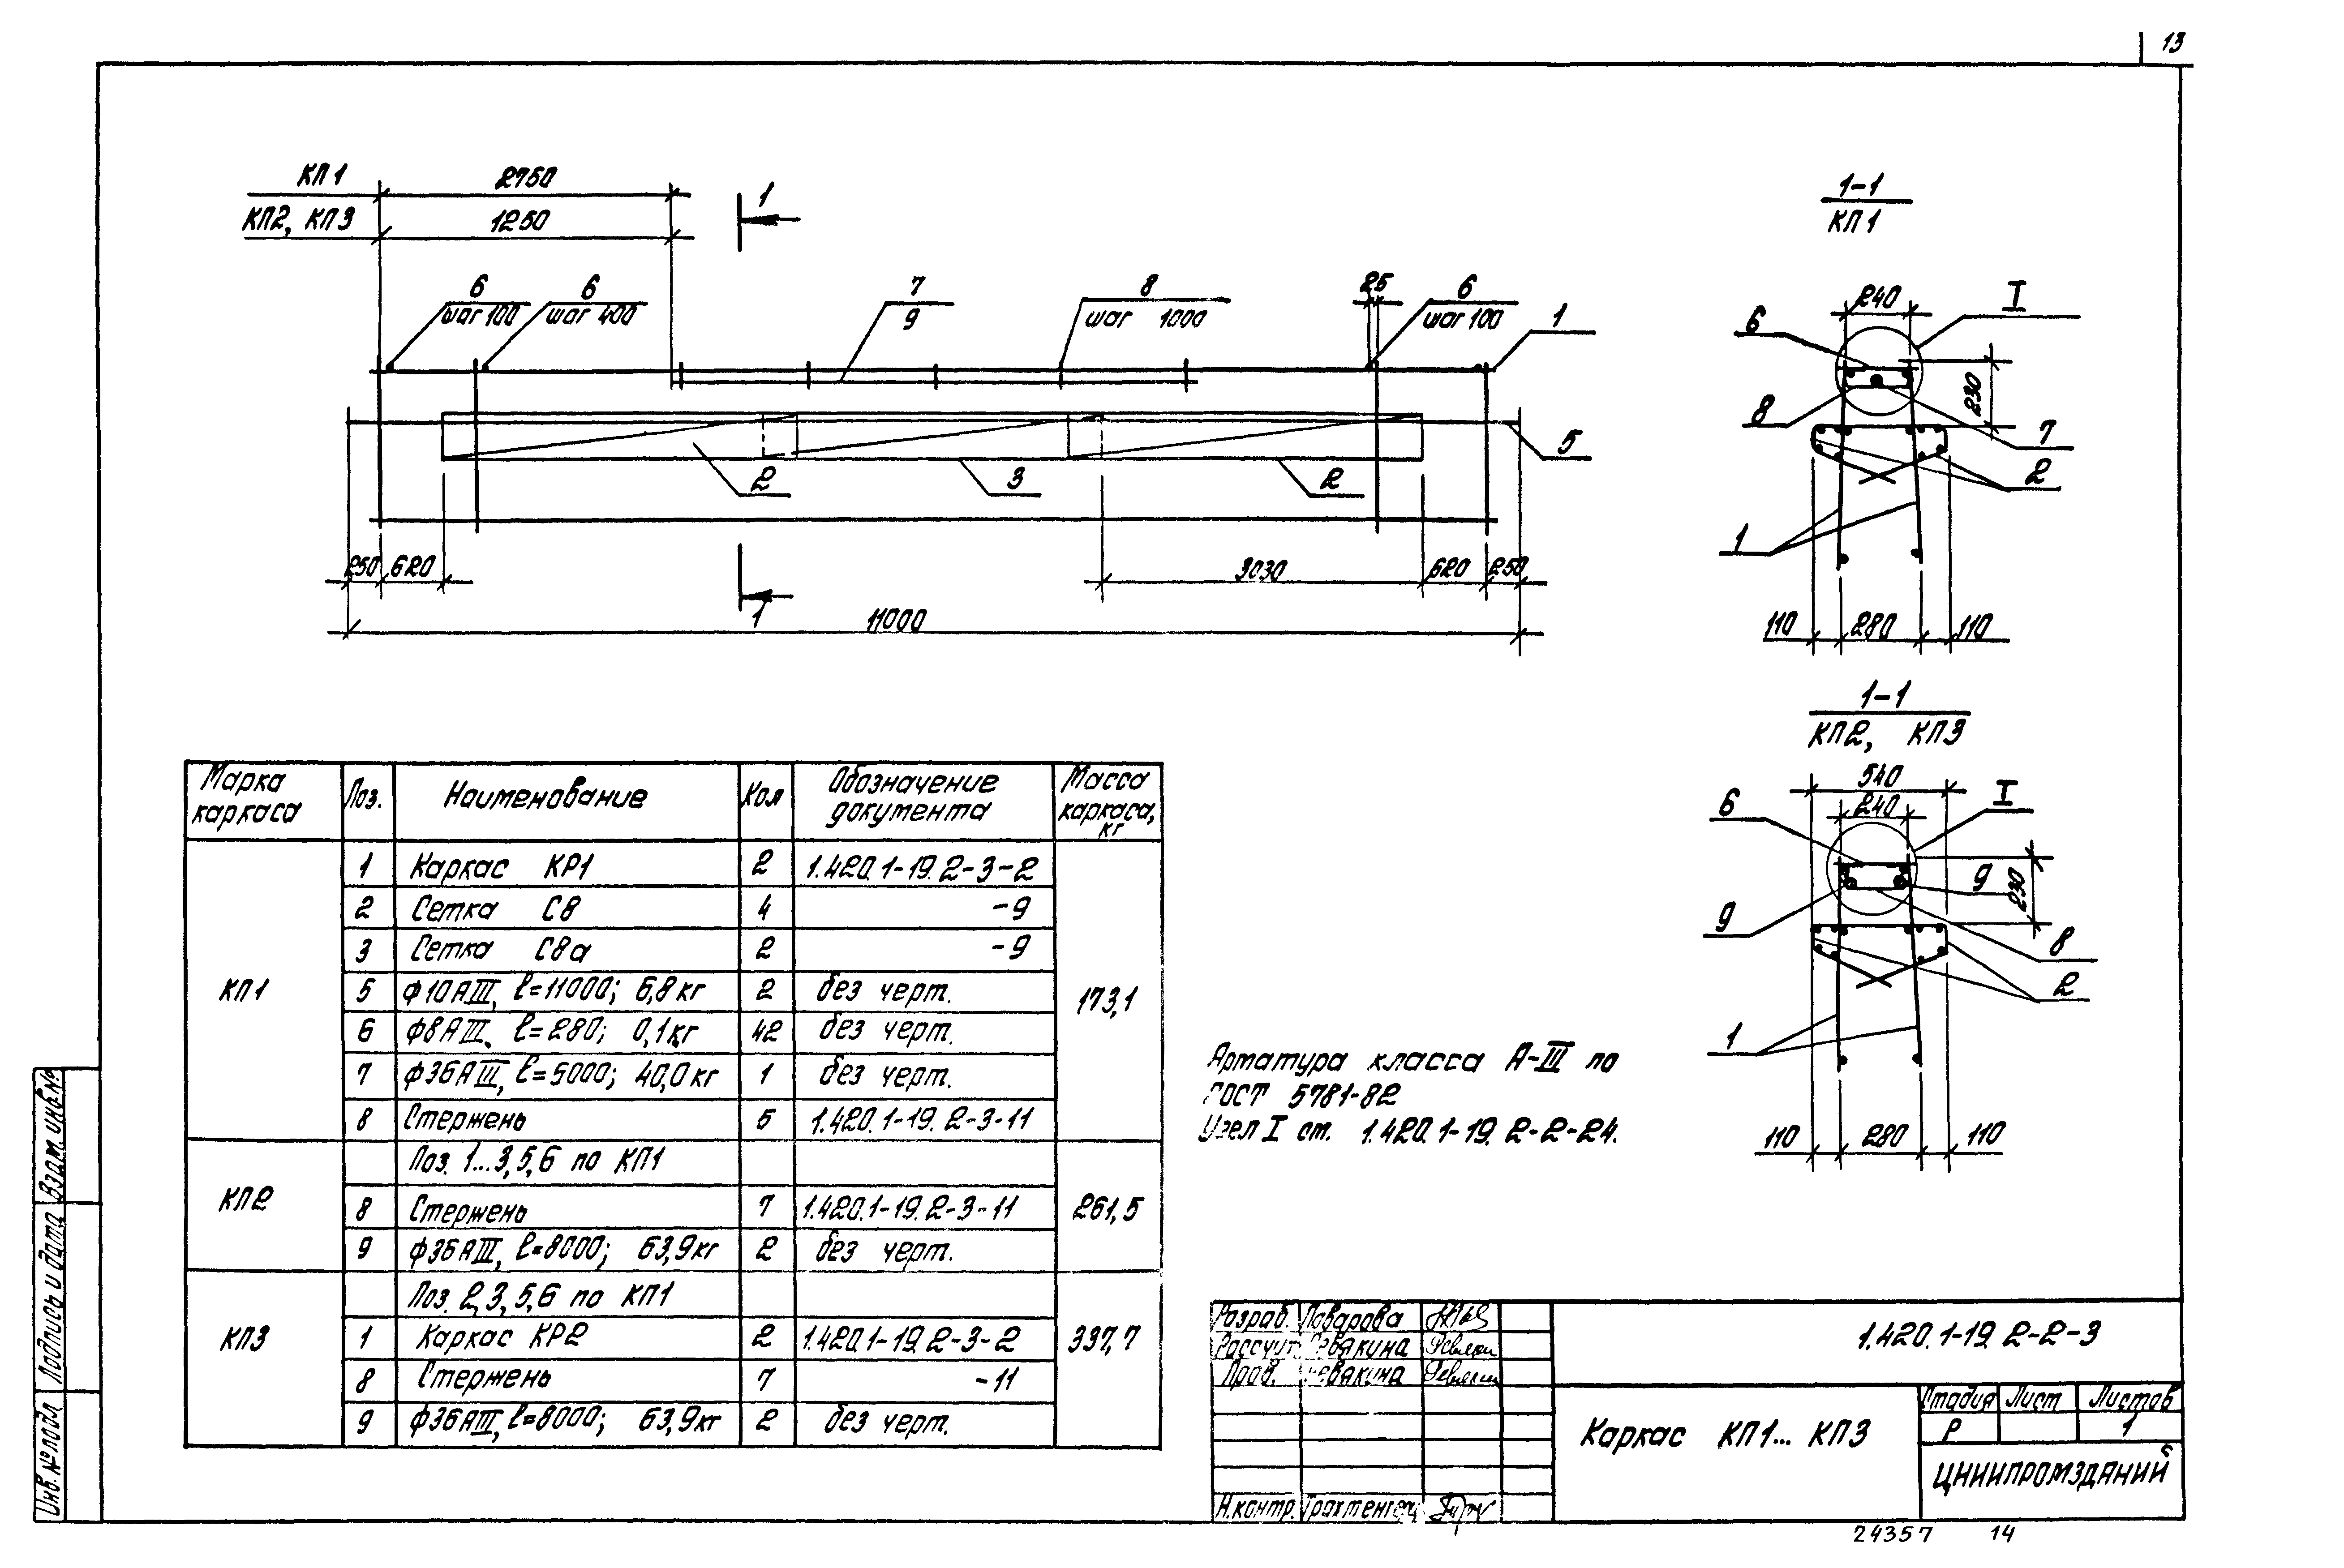 13
КП1 2750
КП2, КП3 1250
1
6
шаг 100
6
шаг 400
7
9
8
шаг 1000
25
6
шаг 100
1
5
2
3
2
250 620 3030 620 250
1
11000
1-1
КП1
240
I
6
230
8
7
2
1
110 280 110
1-1
КП2, КП3
540
I
240
6
9
230
9
8
2
1
110 280 110
Марка каркаса Поз. Наименование Кол Обозначение документа Масса каркаса, кг
КП1 173,1
1 Каркас КР1 2 1.420.1-19.2-3-2
2 Сетка С8 4 -9
3 Сетка С8а 2 -9
5 ф10АIII, ℓ=11000; 6,8кг 2 без черт.
6 ф8АIII, ℓ=280; 0,1кг 42 без черт.
7 ф36АIII, ℓ=5000; 40,0кг 1 без черт.
8 Стержень 5 1.420.1-19.2-3-11
КП2 261,5
Поз. 1...3,5,6 по КП1
8 Стержень 7 1.420.1-19.2-3-11
9 ф36АIII, ℓ=8000; 63,9кг 2 без черт.
КП3 337,7
Поз. 2,3,5,6 по КП1
1 Каркас КР2 2 1.420.1-19.2-3-2
8 Стержень 7 -11
9 ф36АIII, ℓ=8000; 63,9кг 2 без черт.
Арматура класса А-III по
ГОСТ 5781-82
Узел I см. 1.420.1-19.2-2-24.
Разраб. Поварова
Рассчит. Ревякина
Пров. Ревякина
Н.контр.
1.420.1-19.2-2-3
Каркас КП1... КП3
Стадия Лист Листов
Р 1
ЦНИИПРОМЗДАНИЙ
Инв.№подл. Подпись и дата Взам.инв.№
24357 14